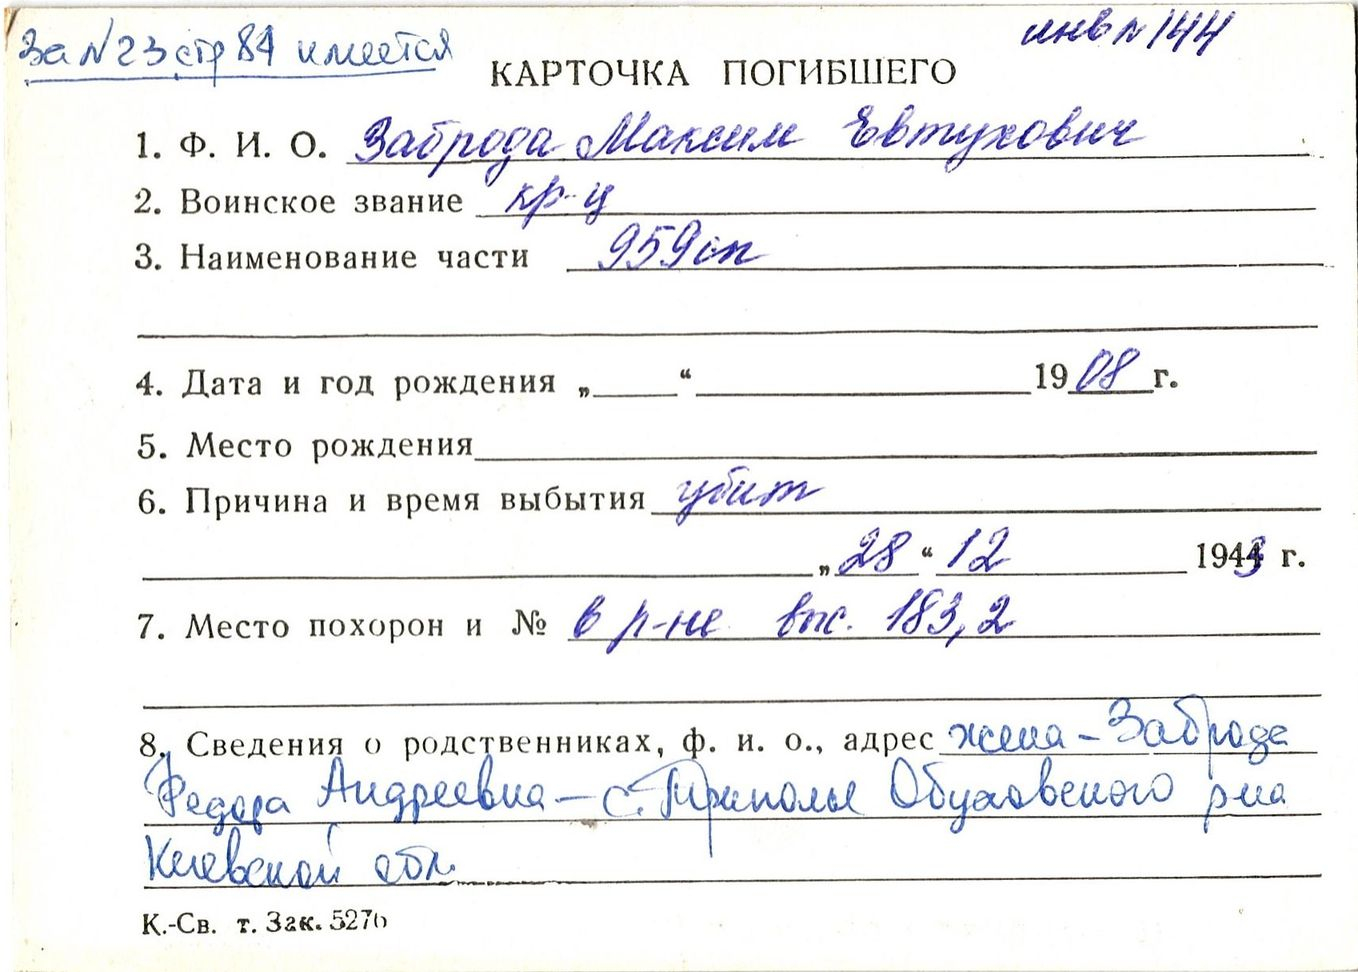 За №23 стр 84 имеется
инв № 144
КАРТОЧКА ПОГИБШЕГО
1. Ф. И. О. Заброда Максим Евтухович
2. Воинское звание кр-ц
3. Наименование части 959 сп
4. Дата и год рождения „ “ 1908 г.
5. Место рождения
6. Причина и время выбытия убит
„ 28 “ 12 1943 г.
7. Место похорон и № в р-не выс. 183,2
8. Сведения о родственниках, ф. и. о., адрес жена – Заброда
Федора Андреевна – с. Триполье Обуховского р-на
Киевской обл.
К.-Св. т. Зак. 5276